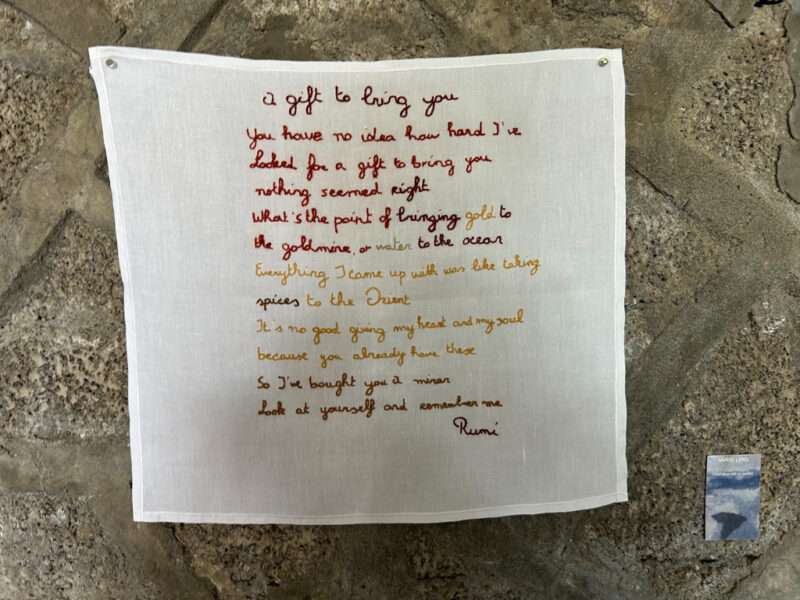 a gift to bring you
You have no idea how hard I've
Looked for a gift to bring you
nothing seemed right
What's the point of bringing gold to
the goldmine, or water to the ocean
Everything I came up with was like taking
spices to the Orient
It's no good giving my heart and my soul
because you already have these
So I've bought you a mirror
Look at yourself and remember me
Rumi